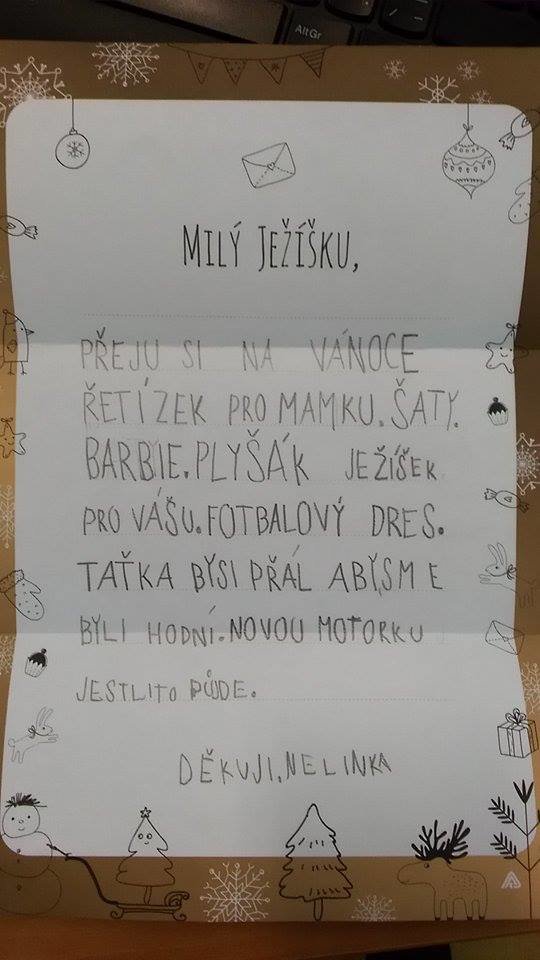 Alt Gr
MILÝ JEŽÍŠKU,
PŘEJU SI NA VÁNOCE
ŘETÍZEK PRO MAMKU. ŠATY.
BARBIE. PLYŠÁK JEŽÍŠEK
PRO VÁŠU. FOTBALOVÝ DRES.
TAŤKA BYSI PŘÁL ABYSME
BYLI HODNÍ. NOVOU MOTORKU
JESTLITO PŮJDE.
DĚKUJI, NELINKA